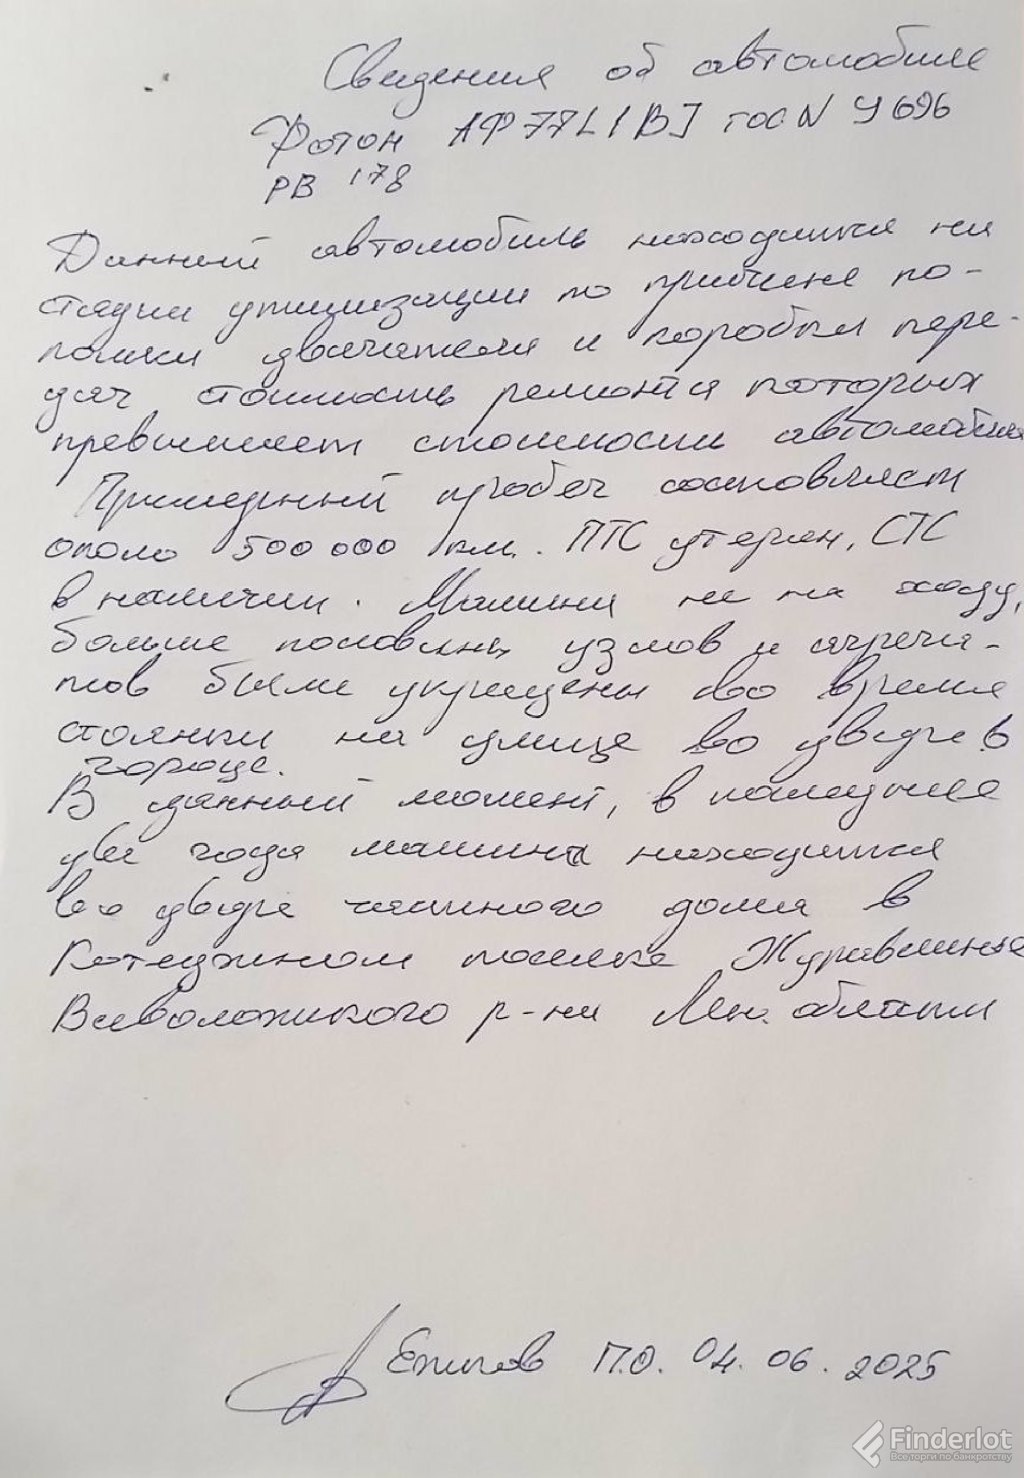 Сведения об автомобиле
Фотон АФ77L1BJ гос N У 696
РВ 178
Данный автомобиль находится на
стадии утилизации по причине по-
ломки двигателя и коробки пере-
дач стоимость ремонта которых
превышает стоимость автомобиля
Примерный пробег составляет
около 500 000 км. ПТС утерян, СТС
в наличии. Машина не на ходу,
больше половины узлов и агрега-
тов были украдены во время
стоянки на улице во дворе в
городе.
В данный момент, в последние
две года машина находится
во дворе частного дома в
Котеджном поселке Журавлиное
Всеволожского р-на Лен. области
П.О. 04.06.2025
Finderlot
Все торги по банкротству